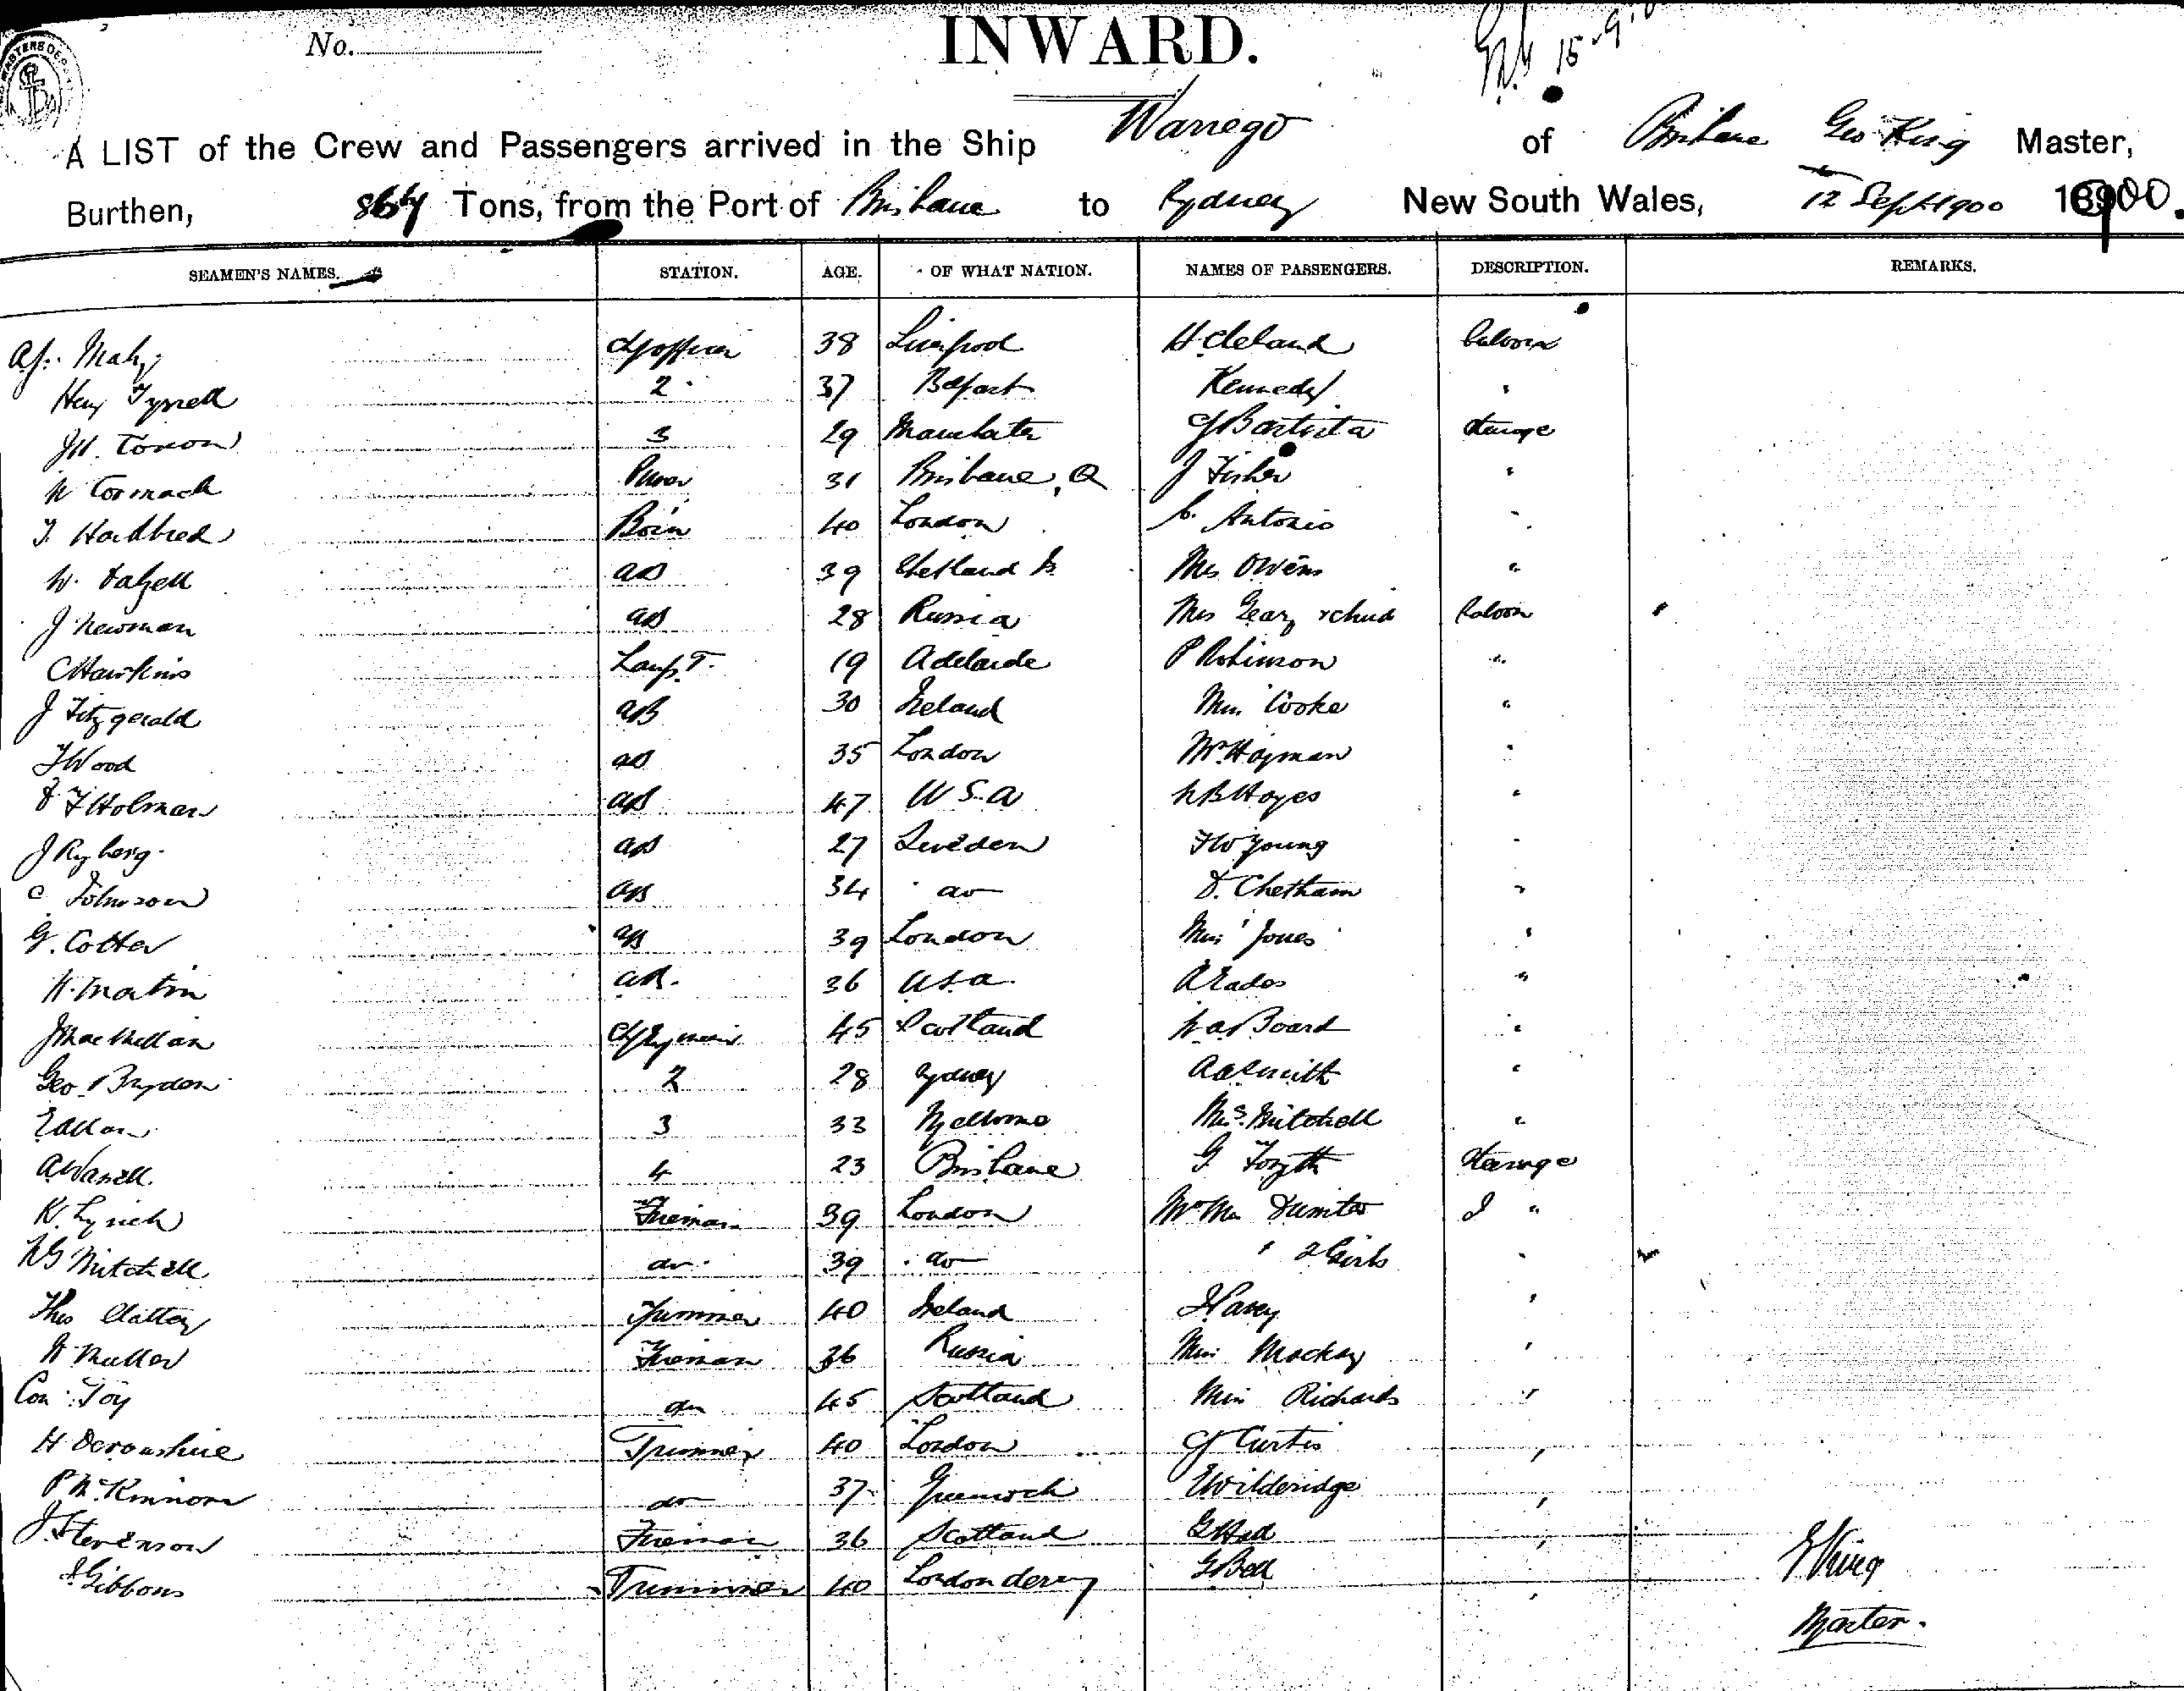 No.
INWARD.
15-9-0
A LIST of the Crew and Passengers arrived in the Ship Warrego of Brisbane Geo King Master,
Burthen, Tons, from the Port of Brisbane to Sydney New South Wales, 12 Sept 1900 1900.
SEAMEN'S NAMES. STATION. AGE. OF WHAT NATION. NAMES OF PASSENGERS. DESCRIPTION. REMARKS.
38 Liverpool H Cleland Saloon
Hy Tyrrell 2 37 Belfast Kennedy "
3 29 Manchester Steerage
W Cormack Purser 31 Brisbane, Q J Fisher "
Bosn 40 London C. Antonio "
W. Dalzell AB 39 Shetland Is Mrs Owens "
J Newman AB 28 Russia Mrs Geary & child Saloon
C Hawkins Lamp T. 19 Adelaide P Robinson "
J Fitzgerald AB 30 Ireland Miss Cooke "
J Wood AB 35 London Mr Hayman "
F Holman AB 47 U S A Hayes "
J Ryberg AB 27 Sweden F W Young "
C Johnson AB 34 do D. Chetham "
G. Cotter AB 39 London Miss Jones "
H. Martin AB. 36 U.S.A. "
J MacMillan 45 Scotland W A Board "
Geo Brydon 2 28 Sydney A A Smith "
E Allan 3 33 Melborne Mrs. Mitchell "
4 23 Brisbane G Forsyth Steerage
K. Lynch Fireman 39 London Mr Mrs "
Mitchell do 39 do " 2 Girls "
Thos Slattery Trimmer 40 Ireland "
Muller Fireman 36 Russia Miss Mackay "
Con Toy do 45 Scotland Miss Richards "
H Devonshire Trimmer 40 London Curtis "
P McKinnon do 37 Greenock E Wilderidge "
J Stevenson Fireman 36 Scotland "
Gibbons Trimmer 40 Londonderry G Bell "
G King
Master.